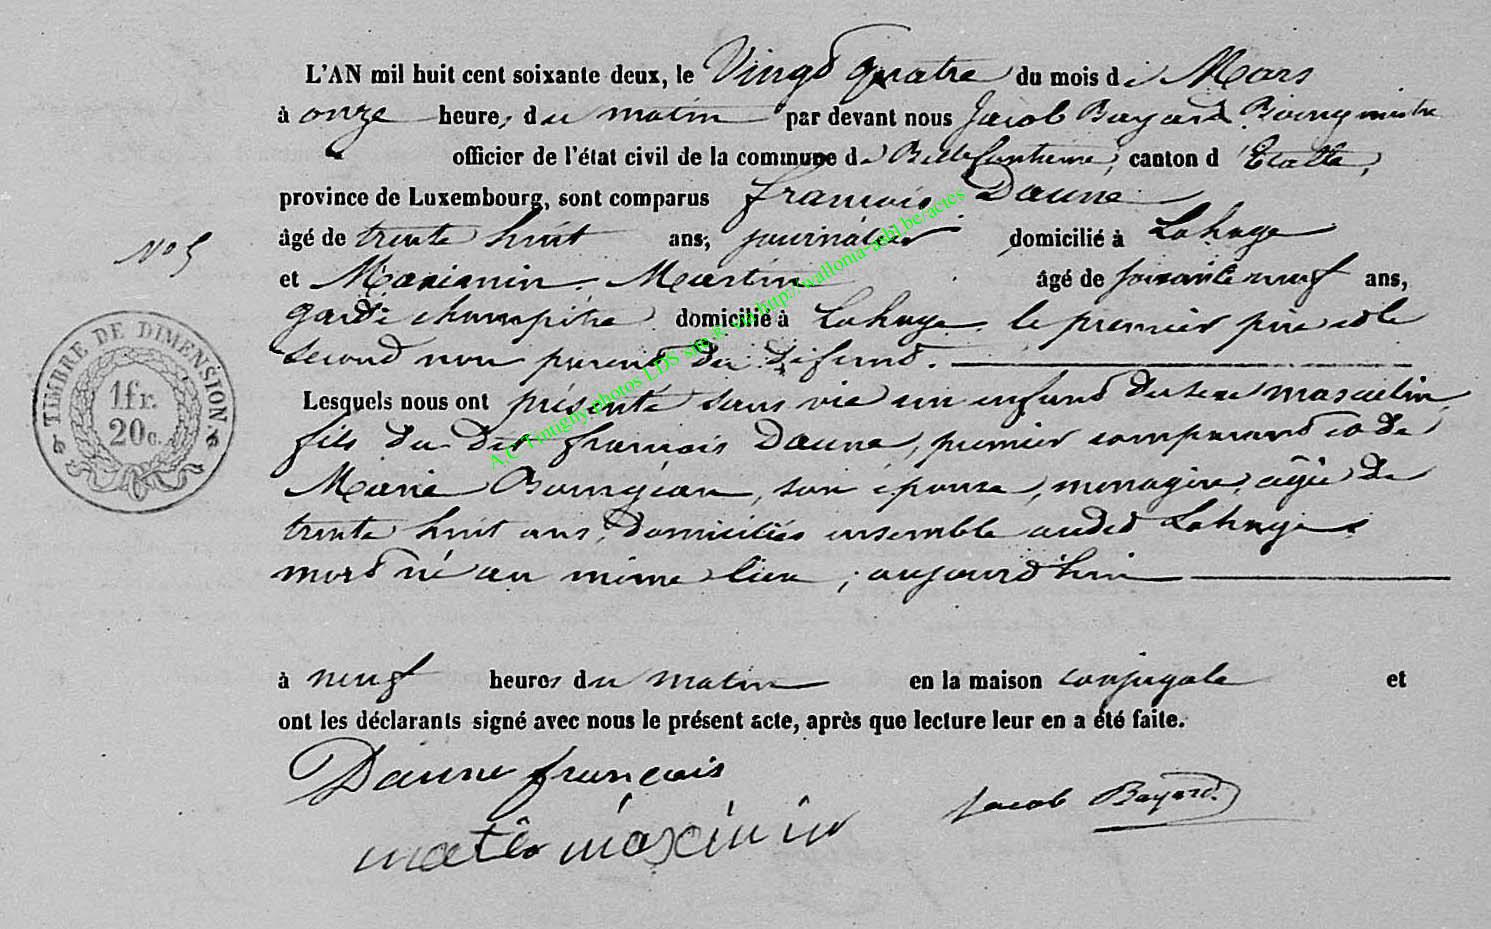 L'AN mil huit cent soixante deux, le Vingt quatre du mois de Mars
à onze heures du matin par devant nous Jacob Bayard Bourgmestre
officier de l'état civil de la commune de Bellefontaine, canton d'Etalle,
province de Luxembourg, sont comparus françois Daune
âgé de trente huit ans, journalier domicilié à Lahage
No 5
et Maximin Martin âgé de soixante neuf ans,
garde champêtre domicilié à Lahage le premier père et le
second non parent du défunt.
Lesquels nous ont présenté sans vie un enfant du sexe masculin,
fils du dit françois Daune, premier comparant et de
Marie Bourgeois, son épouse, menagère, agée de
trente huit ans, domiciliés ensemble audit Lahage
mort né au même lieu, aujourd'hui
à neuf heures du matin en la maison conjugale et
ont les déclarants signé avec nous le présent acte, après que lecture leur en a été faite.
TIMBRE DE DIMENSION.
1 fr.
20 c.
Daune françois
Jacob Bayard
maximin
A.C Tintigny photos LDS site & via http://wallonia-asbl.be/actes